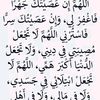 اللَّهُمَّ إِنْ عَصَيْتُكَ جَهْرًا
فَاغْفِرْ لِي، وَإِنْ عَصَيْتُكَ سِرًّا
فَاسْتُرْنِي اللَّهُمَّ لَا تَجْعَلْ
مُصِيبَتِي فِي دِينِي، وَلَا تَجْعَلْ
الدُّنْيَا أَكْبَرَ هَمِّي اللَّهُمَّ لَا
تَجْعَلْ ابْتِلَائِي فِي جَسَدِي،
وَلَا فِي مَالِي، وَلَا فِي أَهْلِي